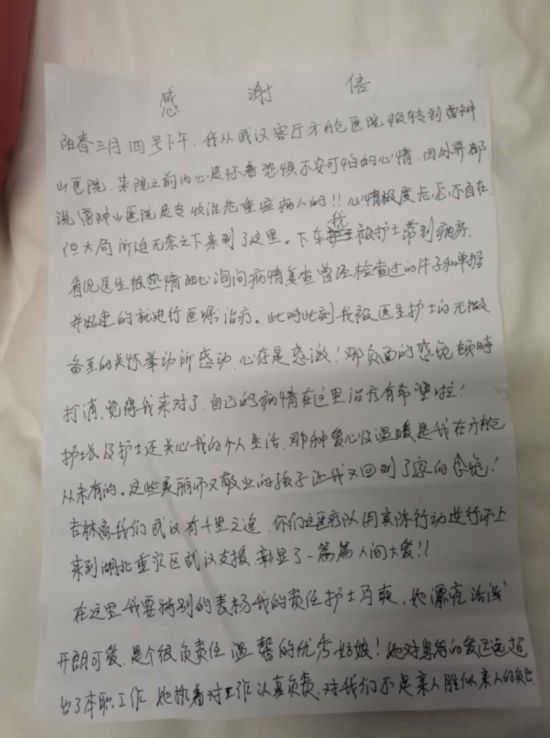 感谢信
阳春三月四号下午,我从武汉客厅方舱医院被转到雷神
山医院,来院之前内心是怀着恐惧不安可怕的心情,因外界都
说雷神山医院是专收治危重症病人的!!心情极度忐忑不自在,
但大局所迫无奈之下来到了这里。下车我被护士带到病房,
看见医生很热情细心询问病情复查曾经检查过的片子和单据
并妥速的就进行医嘱治疗。此时此刻我被医生护士的无微
备至的关怀举动所感动,心存是感激!那负面的感觉顿时
打消,觉得我来对了,自己的病情在这里治疗有希望啦!
护士长及护士还关心我的个人生活,那种爱心及温暖是我在方舱
从未有的。这些美丽而又敬业的孩子让我又回到了家的感觉!
吉林离我们武汉有千里之遥,你们这医疗队用实际行动逆行而上
来到湖北重灾区武汉支援,彰显了一篇篇人间大爱!!
在这里我要特别的表扬我的责任护士马爽,她漂亮活泼
开朗可爱,是个很负责任温馨的优秀姑娘!她对患者的爱远远超
出了本职工作,她执着对工作认真负责,对我们不是亲人胜似亲人的